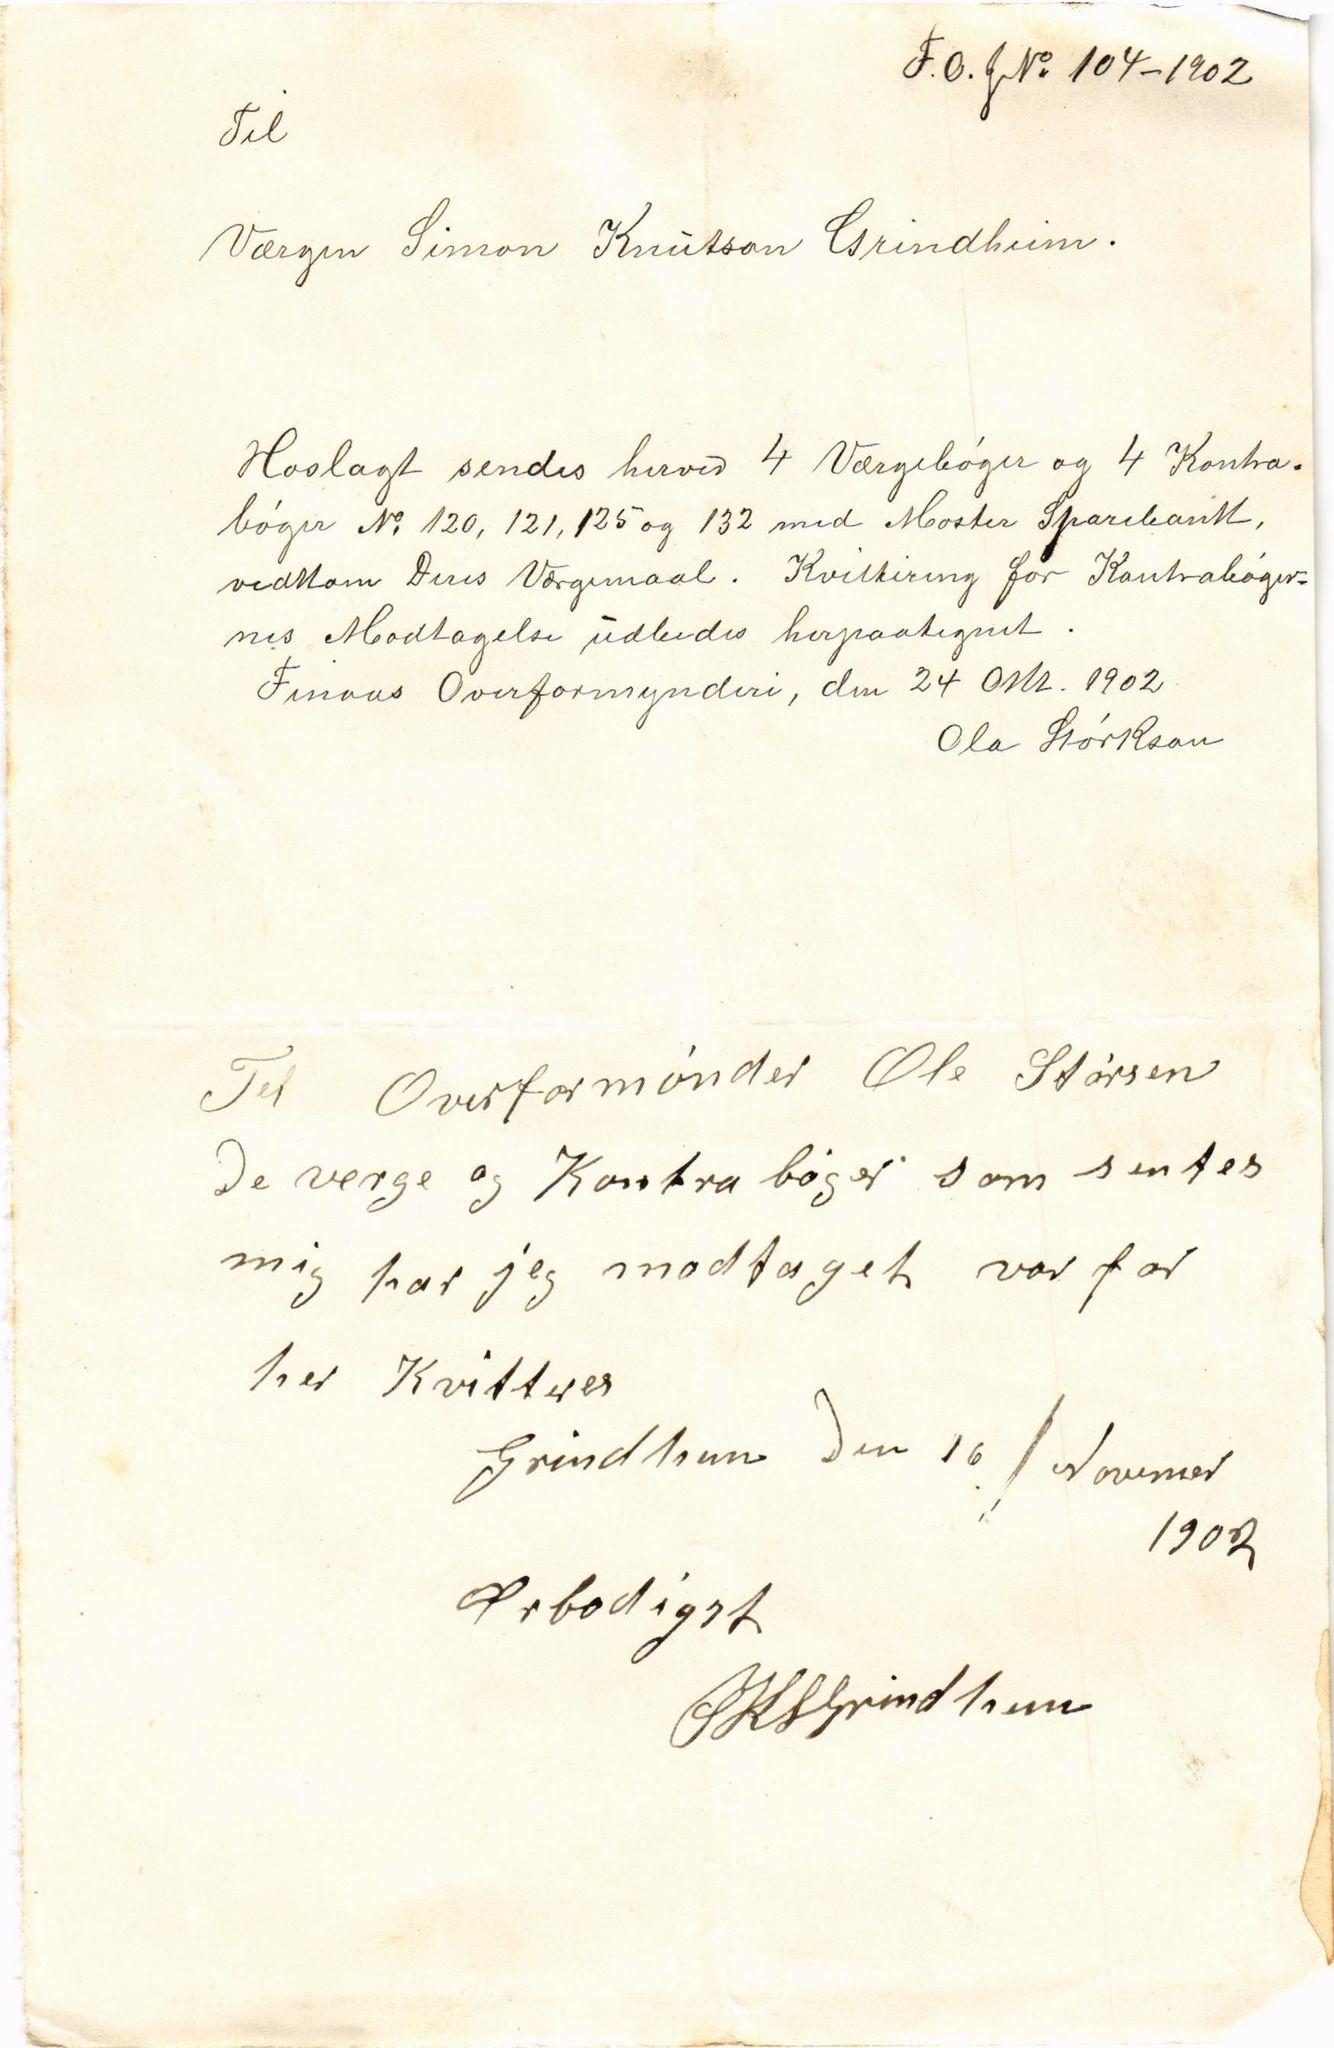 F.O.J.No. 104-1902
Til
Værgen Simon Knutson Grindheim.
Hoslagt sendes herved 4 Værgebøger og 4 Kontra-
bøger No. 120, 121, 125 og 132 med Moster Sparebank,
vedkom Deres Værgemaal. Kvittering for Kontrabøger-
nes Modtagelse udbedes herpaategnet.
Finaas Overformynderi, den 24 Okt. 1902
Ola Størkson
Til Overformønder Ole Størsen
De verge og Kontra bøger som sentes
mig har jeg modtaget vor for
her Kvitteres
Grindheim Den 16/ Novemer
1902
Ørbødigst
SKSGrindheim